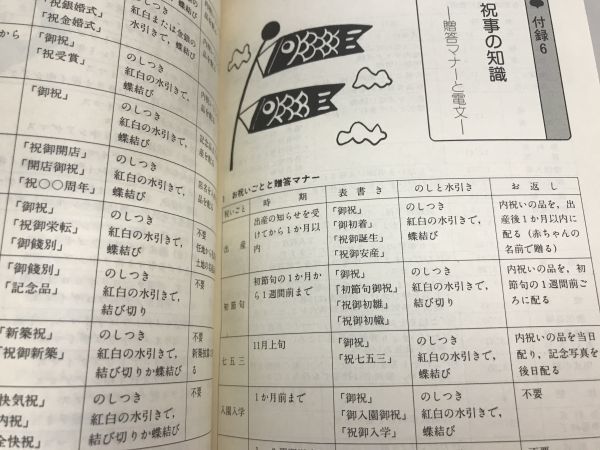 付録6
祝事の知識
―贈答マナーと電文―
お祝いごとと贈答マナー
祝いごと
時期
表書き
のしと水引き
お返し
出産
出産の知らせを受
けてから1か月以
内
「御祝」
「御初着」
「祝御誕生」
「祝御安産」
のしつき
紅白の水引きで、
蝶結び
内祝いの品を、出
産後1か月以内に
配る(赤ちゃんの
名前で贈る)
初節句
初節句の1か月か
ら1週間前まで
「御祝」
「初節句御祝」
「祝御初雛」
「祝御初幟」
のしつき
紅白の水引きで、
蝶結び
内祝いの品を、初
節句の1週間前ご
ろに配る
七五三
11月上旬
「御祝」
「祝七五三」
のしつき
紅白の水引きで、
蝶結び
内祝いの品を当日
配り、記念写真を
後日配る
入園入学
1か月前まで
「御祝」
「御入園御祝」
「祝御入学」
のしつき
紅白の水引きで、
蝶結び
不要
「祝銀婚式」
「祝金婚式」
紅白または金銀の
水引きで、蝶結び
から
「御祝」
「祝受賞」
のしつき
紅白の水引きで、
蝶結び
「御祝」
のしつき
紅白の水引きで、
蝶結び
「祝御開店」
「開店御祝」
「祝〇〇周年」
のしつき
紅白の水引きで、
蝶結び
「御祝」
「祝御栄転」
「御餞別」
のしつき
紅白の水引きで、
蝶結び
不要
「御餞別」
「記念品」
のしつき
紅白の水引きで、
結び切り
不要
「新築祝」
「祝御新築」
のしつき
紅白の水引きで、
結び切りか蝶結び
不要
快気祝」
内祝」
全快祝」
のしつき
紅白の水引きで、
結び切りか蝶結び
不要